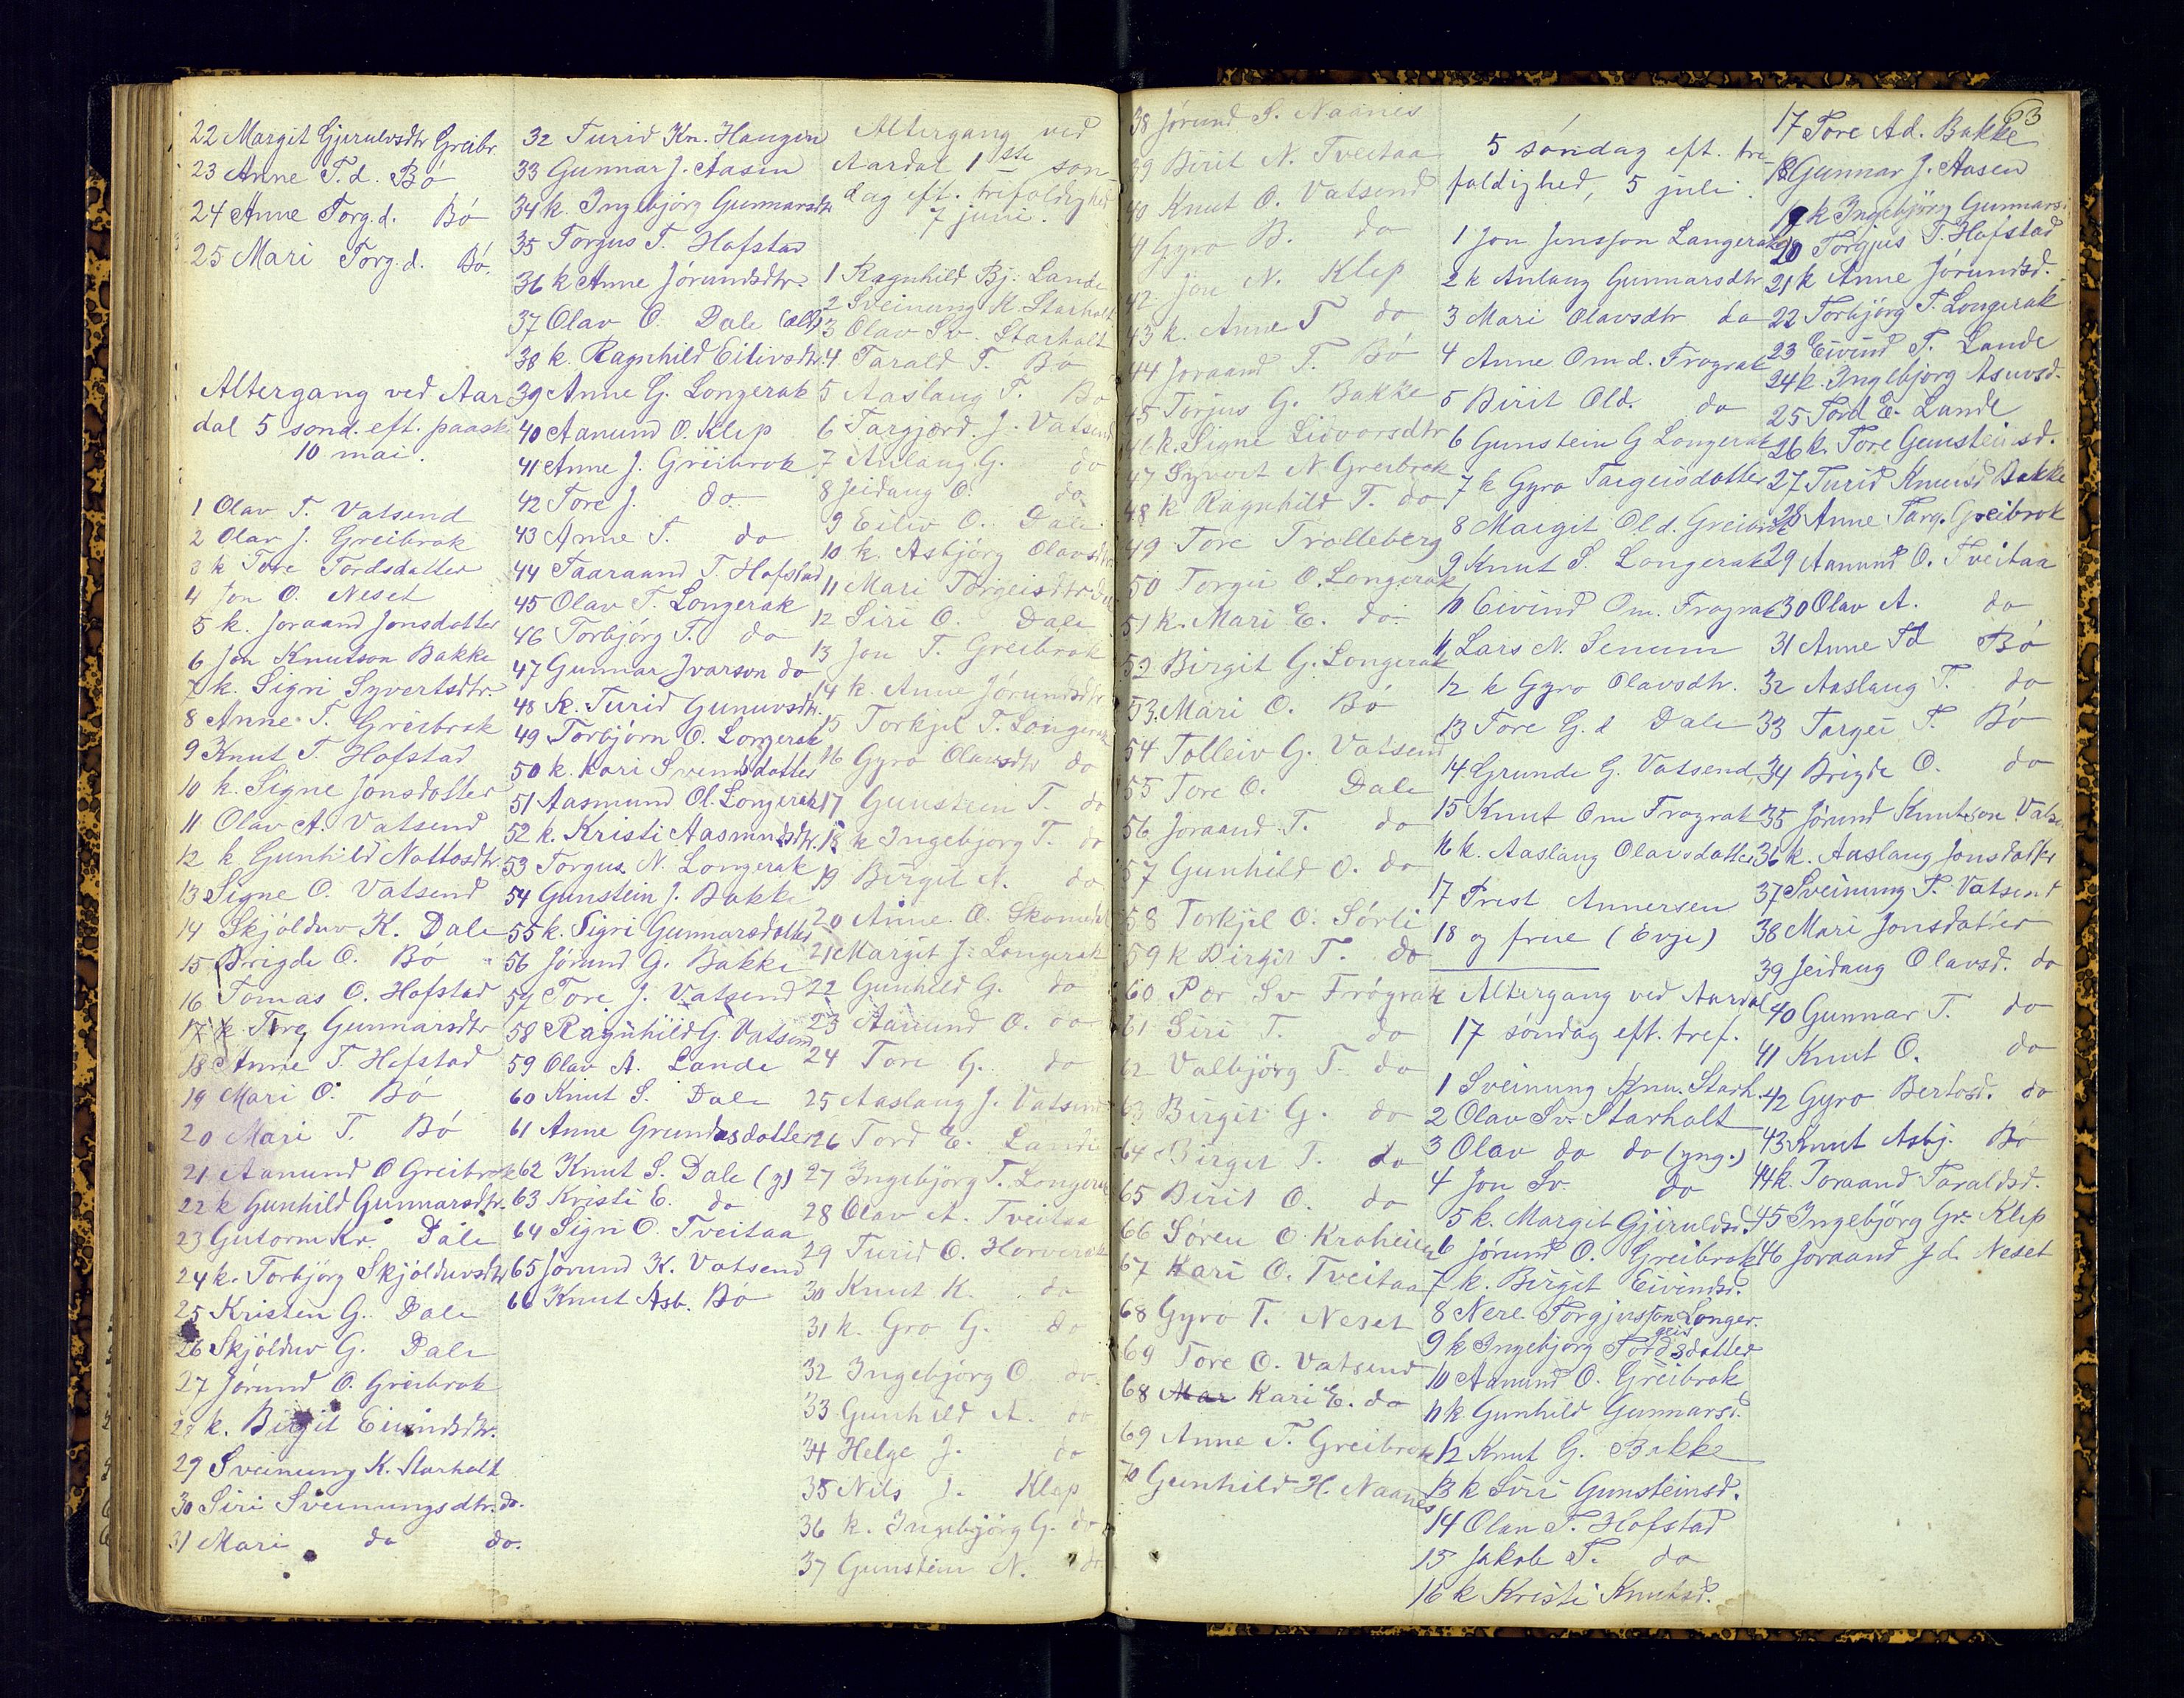 22 Margit Gjerulvsdtr Greibr.
23 Anne T.d. Bó
24 Anne Torg.d. Bó
25 Mari Torg.d. Bó.
Altergang ved Aar
dal 5 sond. eft. paaske
10 mai.
1 Olav T. Vatsend
2 Olav J. Greibrok
3 k Tore Tordsdatter
4 Jon O. Neset
5 k. Joraand Jonsdatter
6 Jon Knutson Bakke
7 k. Sigri Syvertsdtr.
8 Anne T. Greibrok
9 Knut T. Hofstad
10 k. Signe Jonsdotter
11 Olav A. Vatsend
12 k Gunhild Nottosdtr.
13 Signe O. Vatsend
14 Skjólduv K. Dale
15 Brigde O. Bó
16 Tomas O. Hofstad
17 k. Tore Gunnarsdtr
18 Anne T. Hofstad
19 Mari O. Bó
20 Mari T. Bó
21 Aanund O Greibrok
22 k Gunhild Gunnarsdtr.
23 Gutorm Kr. Dale
24 k. Torbjörg Skjólduvsdtr
25 Kristen G. Dale
26 Skjólduv G. Dale
27 Jórund O. Greibrok
28 k. Birgit Eivindsdtr.
29 Sveinung K. Starholt
30 Siri Sveinungsdtr. do.
31 Mari do do.
32 Turid Kn. Haugen
33 Gunnar J. Aasen
34 k. Ingebjörg Gunnarsdtr
35 Torgus T. Hofstad
36 k Anne Jórundsdtr.
37 Olav O. Dale (eldr)
38 k. Ragnhild Eilivsdtr.
39 Anne G. Longerak
40 Aanund O. Klep
41 Anne J. Greibrok
42 Tore J. do.
43 Anne T. do
44 Taaraand T. Hofstad
45 Olav T. Longerak
46 Torbjörg T. do
47 Gunnar Ivarson do
48 k. Turid Gunuvsdtr.
49 Torbjórn O. Longerak
50 k. Kari Svendsdatter
51 Aasmund Ol. Longerak
52 k. Kristi Aasmundsdtr.
53 Torgus N. Longerak
54 Gunstein J. Bakke
55 k. Sigri Gunnarsdotter
56 Jórund G. Bakke
57 Tore J. Vatsend
58 Ragnhild G. Vatsend
59 Olav A. Lande
60 Knut S. Dale
61 Anne Grundesdotter
62 Knut S. Dale (g)
63 Kristi E. do
64 Sigri O. Tveitaa
65 Jórund K. Vatsend
66 Knut Asb. Bó
Altergang ved
Aardal 1ste son-
dag eft. trefoldighed
7 juni.
1 Ragnhild Bj. Lande
2 Sveinung K Starholt
3 Olav Sv. Starholt
4 Tarald T. Bó
5 Aaslaug T. Bó
6 Targjærd. J. Vatsend
7 Anlaug G. do
8 Jeidaug O. do
9 Eiliv O. Dale
10 k. Asbjórg Olavsdtr
11 Mari Torgeisdtr Dale
12 Siri O. Dale
13 Jon T. Greibrok
14 k. Anne Jórundsdtr
15 Torkjel T. Longerak
16 Gyro Olavsdtr do
17 Gunstein T. do
18 k Ingebjorg T. do
19 Birgit N. do
20 Anne O. Skomedal
21 Margit J. Longerak
22 Gunhild G. do
23 Aanund O. do
24 Tore G. do
25 Aaslaug J. Vatsend
26 Tord E. Lande
27 Ingebjörg T. Longerak
28 Olav A. Tveitaa
29 Turid O. Horverak
30 Knut K. do
31 k. Gro G. do
32 Ingebjórg O do.
33 Gunhild A. do
34 Helge J. do
35 Nils J. Klep
36 k. Ingebjörg G. do
37 Gunstein N. do
63
38 Jórund S. Naanes
39 Birit N. Tveitaa
40 Knut O. Vatsend
41 Gyro B. do
42 Jon N. Klep
43 k. Anne T do
44 Joraand T. Bó
45 Torjus G. Bakke
46 k. Signe Sidvorsdtr
47 Syvert N. Greibrok
48 k Ragnhild T. do
49 Tore Trolleberg
50 Torgei O. Longerak
51 k. Mari E. do.
52 Birgit G. Longerak
53. Mari O. Bó
54 Tolleiv G. Vatsend
55 Tore O. Dale
56 Joraand T. do
57 Gunhild O. do
58 Torkjel O. Sórli
59 k Birgit T. do
60 Per Sv Frógrak
61 Siri T. do
62 Valbjörg T. do
63 Birgit G. do
64 Birget T. do
65 Birit O. do
66 Sóren O Kraheien
67 Kari O. Tveitaa
68 Gyro T. Neset
69 Tore O. Vatsend
68 Mar Kari E. do
69 Anne T. Greibrok
70 Gunhild H. Naanes
5 söndag eft. tre-
foldighed, 5 juli.
1 Jon Jensson Langerak
2 k Anlaug Gunnarsdtr
3 Mari Olavsdtr do
4 Anne Om d. Frograk
5 Birit Old. do
6 Gunstein G Longerak
7 k Gyro Targeisdotter
8 Margit Ol d. Greibrok
9 Knut S. Longerak
10 Eivind Om. Frograk
11 Lars N. Senum
12 k Gyro Olavsdtr.
13 Tore G. d Dale
14 Grunde G. Vatsend
15 Knut Om Frograk
16 k. Aaslaug Olavsdatter
17 Prest Annersen
18 og frue (Evje)
Altergang ved Aardal
17 söndag eft. tref.
1 Sveinung Knu. Starh.
2 Olav Sv. Starholt
3 Olav do do (yng.)
4 Jon Sv. do
5 k. Margit Gjeruldsd.
6 Jórund O. Greibrok
7 k. Birget Eivindsd.
8 Nere Torgjusson Longer.
9 k Ingebjorg Tordsdatter
10 Aanund O. Greibrok
11 k Gunhild Gunnarsd.
12 Knut G. Bakke
13 k Siri Gunsteinsd.
14 Olav T. Hofstad
15 Jakob T. do
16 k Kristi Knutsd.
17 Tore Ad. Bakke
18 Gunnar J. Aasen
19 k Ingebjörg Gunnarsd.
20 Torgjus T. Hofstad
21 k Anne Jórundsd.
22 Torbjórg T. Longerak
23 Eivind T. Lande
24 k. Ingebjorg Asuvsd.
25 Tord E. Lande
26 k. Tore Gunsteinsd.
27 Turid Knutsd Bakke
28 Anne Targ. Greibrok
29 Aanund O. Tveitaa
30 Olav A. do
31 Anne Td Bó
32 Aaslaug T. do
33 Targei T. Bó
34 Brigde O. do
35 Jórund Knutson Vatse
36 k. Aaslaug Jonsdatter
37 Sveinung T. Vatsend
38 Mari Jonsdatter
39 Jeidaug Olavsd. do
40 Gunnar T. do
41 Knut O. do
42 Gyro Bertosd. do
43 Knut Asbj. Bó
44 k. Toraand Taraldsd.
45 Ingebjörg Gr. Klep
46 Joraand J d. Neset